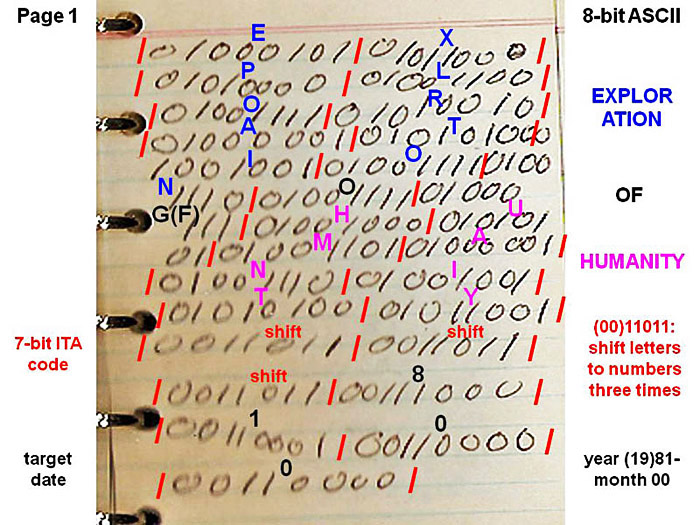 Page 1
8-bit ASCII
E X
01000101 01011000
P L
01010000 01001100
O R
01001111 01010010
A T
01000001 010101000
I O
1001001 01001111 0100
N O
1110 01001111 01000
G(F) H U
111 01001000 010101
M A
01 01001101 01000001
N I
01001110 01001001
T Y
01010100 01011001
shift shift
0011011 0011011
shift 8
0011011 00111000
1 0
00110001 00110000
0
00110000
7-bit ITA
code
target
date
EXPLOR
ATION
OF
HUMANITY
(00)11011:
shift letters
to numbers
three times
year (19)81-
month 00